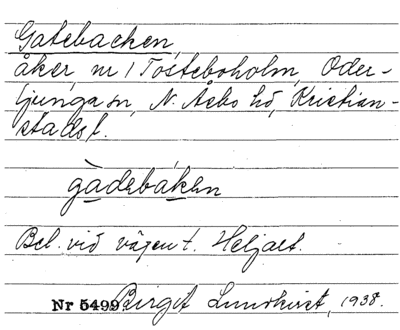 Gatebacken,
åker, nr 1 Tosteboholm, Oder-
ljunga sn, N. Åsbo hd, Kristian-
stads l.
gàdebáken
Bel. vid vägen t. Heljalt.
Nr 5499 Birgit Lundkvist, 1938.